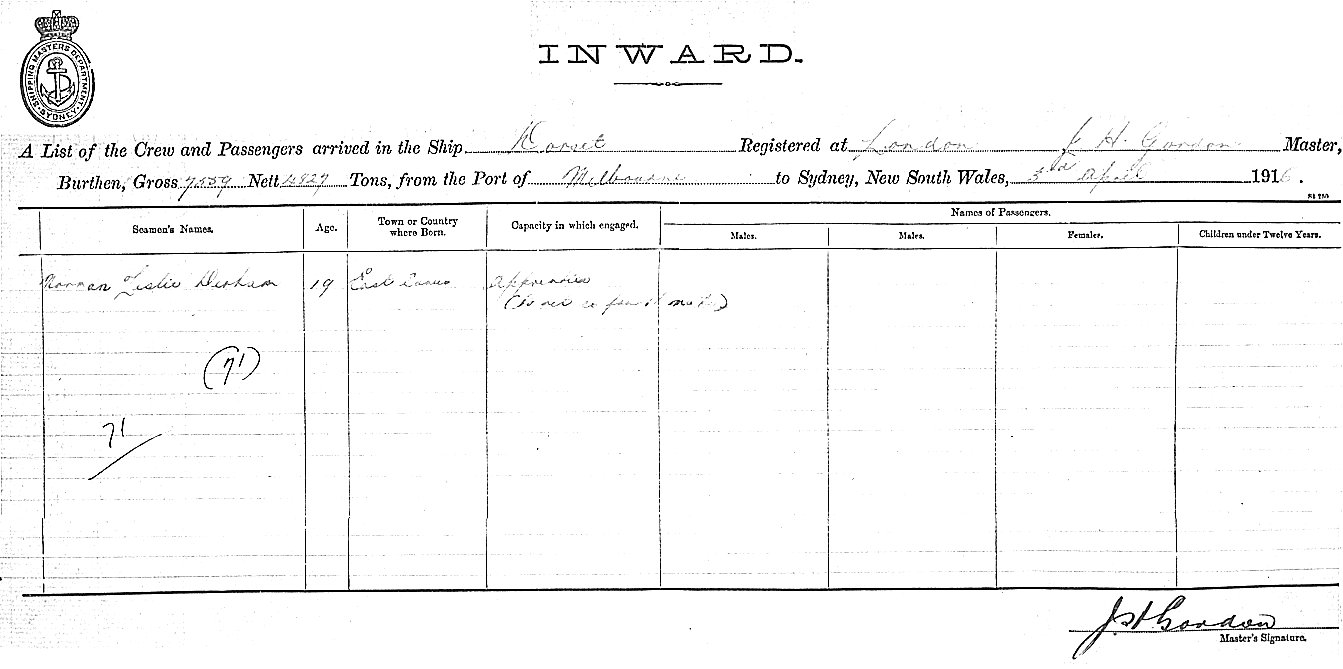 SHIPPING MASTERS DEPARTMENT · SYDNEY ·
INWARD.
A List of the Crew and Passengers arrived in the Ship Dorset Registered at London J. H. Gordon Master,
Burthen, Gross 7559 Nett Tons, from the Port of Melbourne to Sydney, New South Wales, 5th April 1916.
Names of Passengers.
Seamen's Names. Age. Town or Country where Born. Capacity in which engaged. Males. Males. Females. Children under Twelve Years.
Norman Leslie 19 East Apprentice
(71)
71
J H Gordon
Master's Signature.